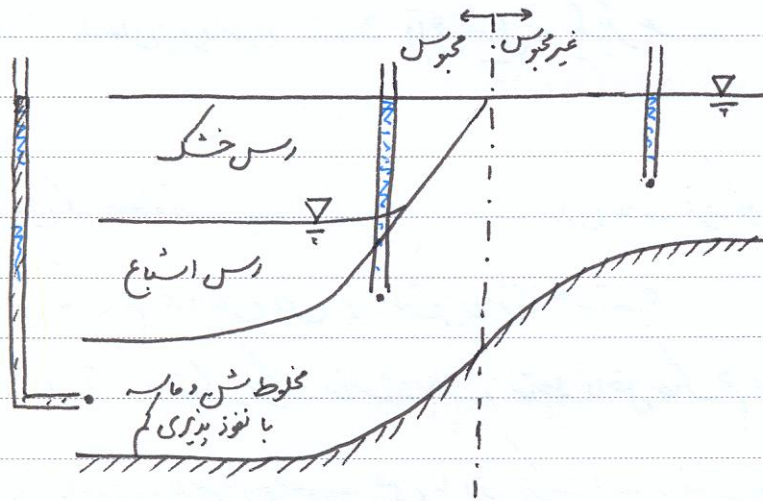 غیرمحبوس
محبوس
رس خشک
رس اشباع
مخلوط شن و ماسه
با نفوذ پذیری کم